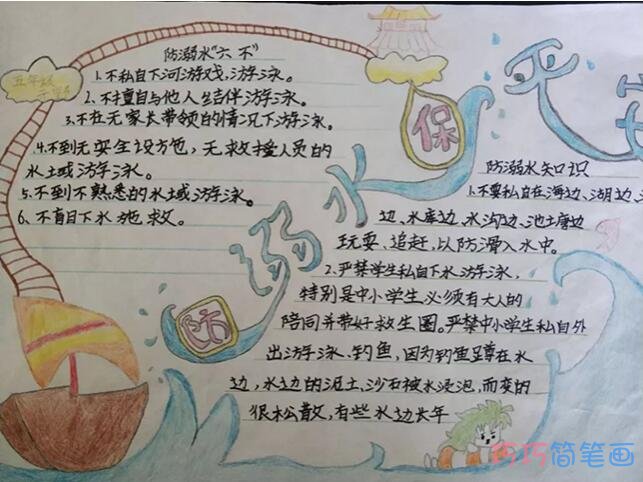 五年级
防溺水"六不"
1.不私自下河游戏,游泳。
2.不擅自与他人结伴游泳。
3.不在无家长带领的情况下游泳。
4.不到无安全设施,无救援人员的
水域游泳。
5.不到不熟悉的水域游泳。
6.不盲目下水施救。
防溺水
保平
防溺水知识
1.不要私自在海边、湖边、
边、水库边、水沟边、池塘边
玩耍、追赶,以防滑入水中。
2.严禁学生私自下水游泳,
特别是中小学生必须有大人的
陪同并带好救生圈。严禁中小学生私自外
出游泳、钓鱼,因为钓鱼蹲在水
边,水边的泥土、沙石被水浸泡,而变的
很松散,有些水边长年
巧巧简笔画